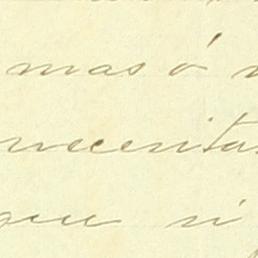 mas ó
necesita
que si